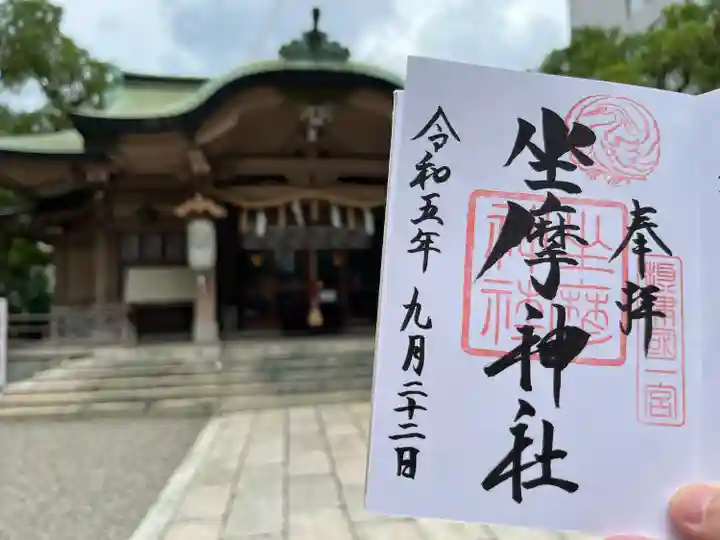 奉拝
攝津國一宮
坐摩神社
坐摩神社
令和五年九月二十二日